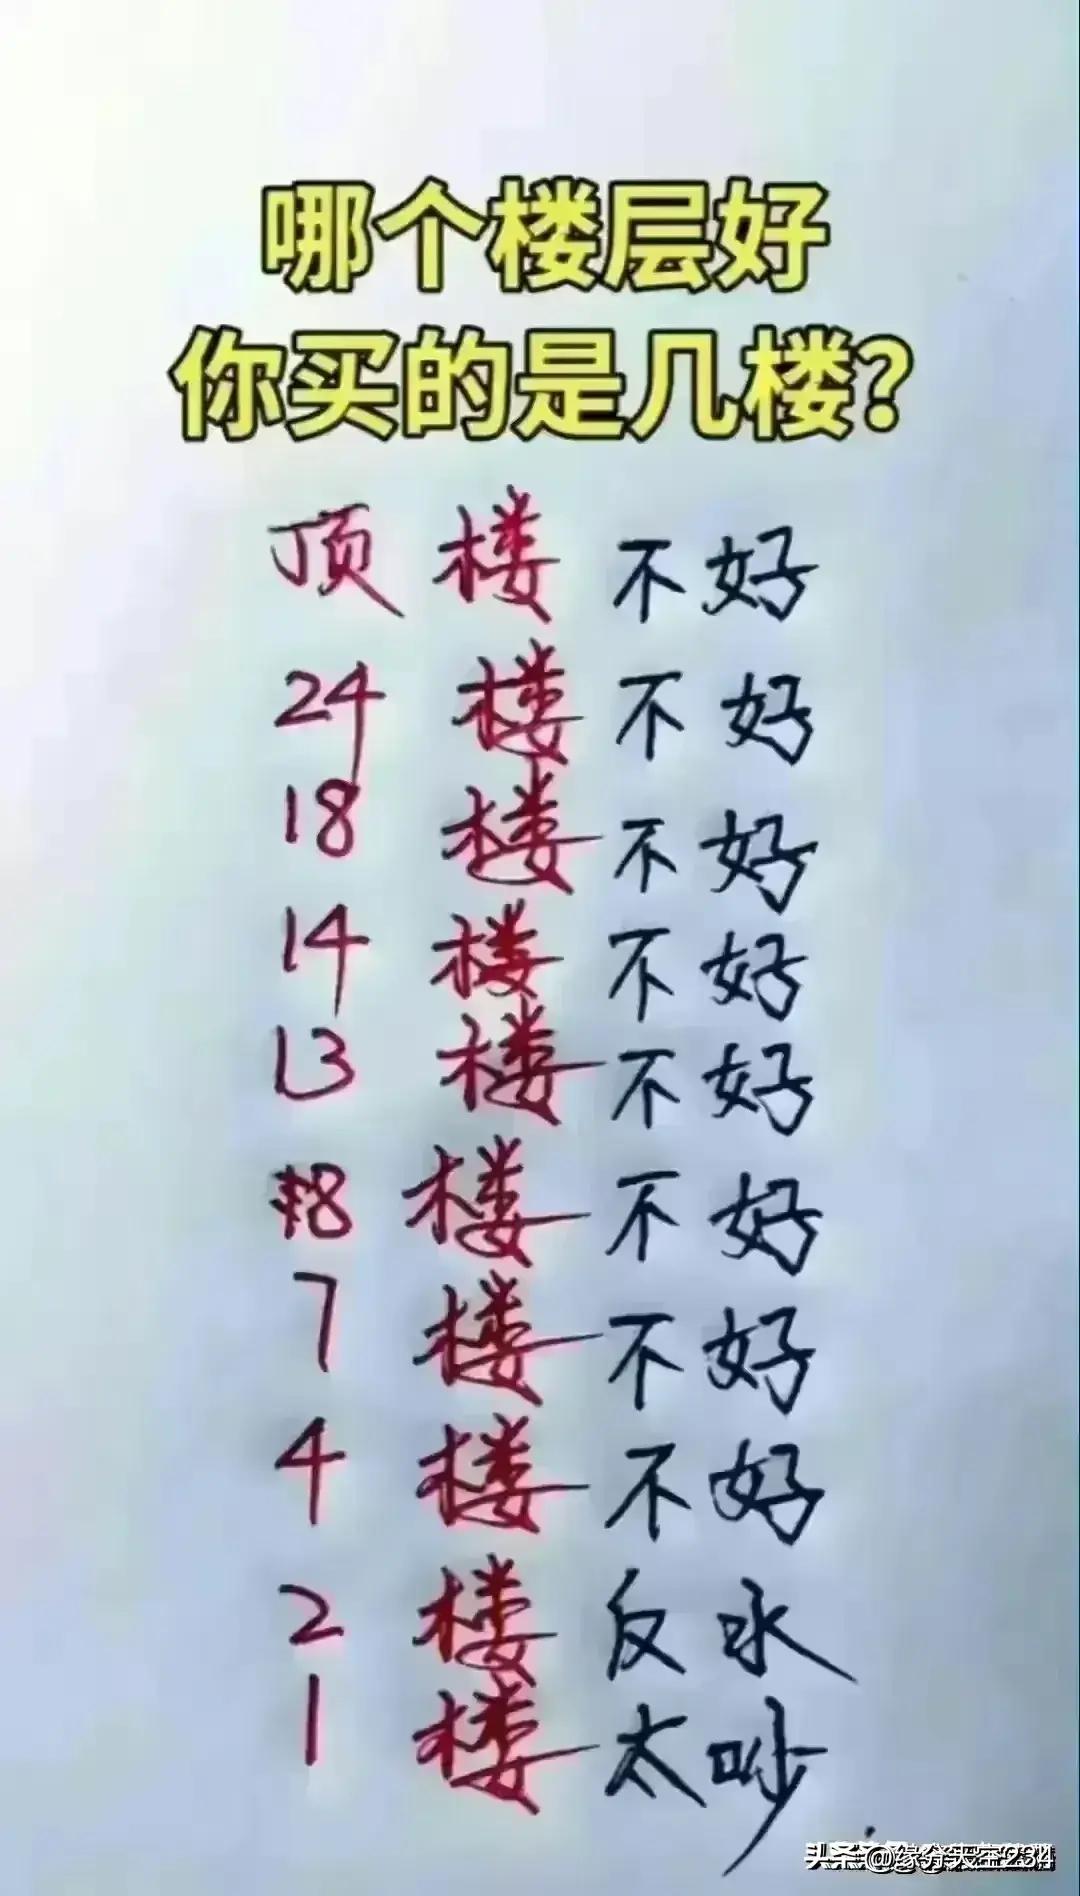 哪个楼层好
你买的是几楼?
顶楼不好
24楼不好
18楼不好
14楼不好
13楼不好
8楼不好
7楼不好
4楼不好
2楼反水
1楼太吵
头条 @缘分天空234